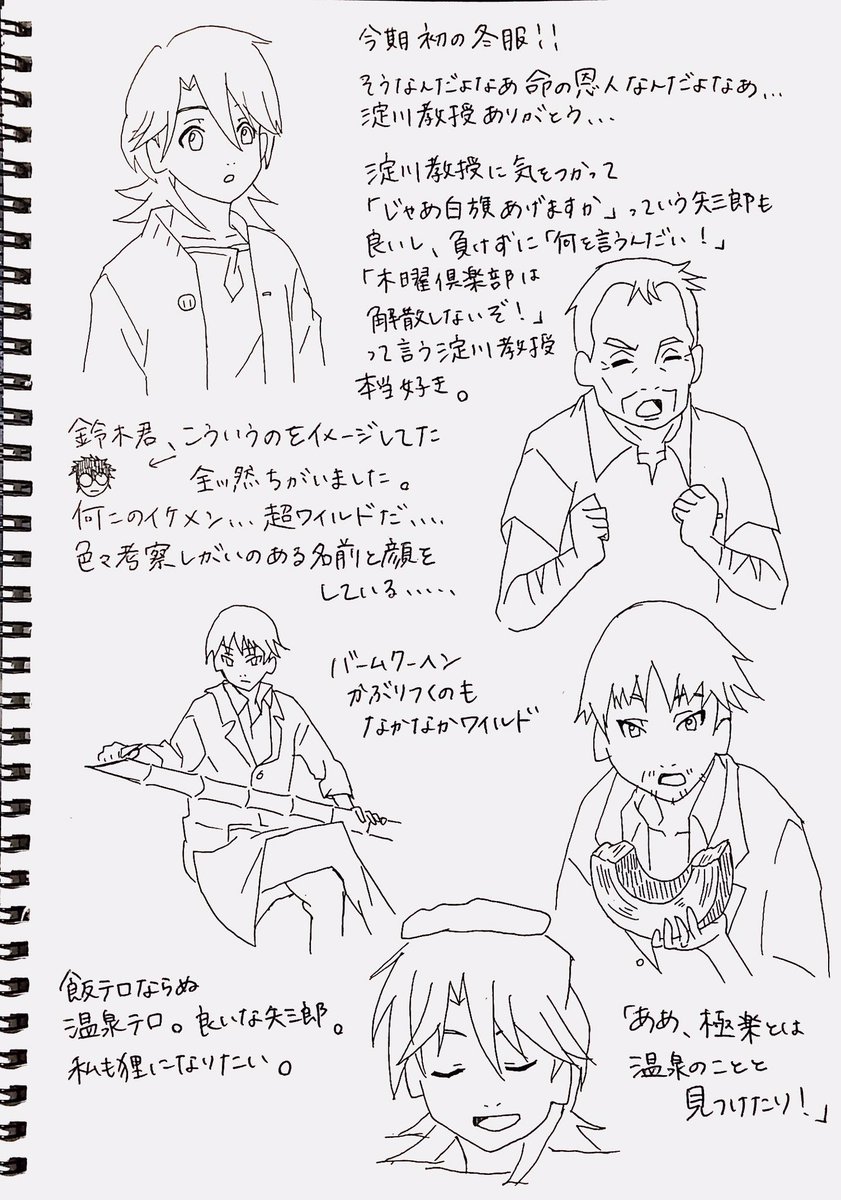 今期初の冬服!!
そうなんだよなあ命の恩人なんだよなあ...
淀川教授ありがとう...
淀川教授に気をつかって
「じゃあ白旗あげますか」っていう矢三郎も
良いし、負けずに「何を言うんだい!」
「木曜倶楽部は
解散しないぞ!」
って言う淀川教授
本当好き。
鈴木君、こういうのをイメージしてた
全ッ然ちがいました。
何このイケメン...超ワイルドだ....
色々考察しがいのある名前と顔を
している.....
バームクーヘン
かぶりつくのも
なかなかワイルド
飯テロならぬ
温泉テロ。良いな矢三郎。
私も狸になりたい。
「ああ、極楽とは
温泉のことと
見つけたり!」